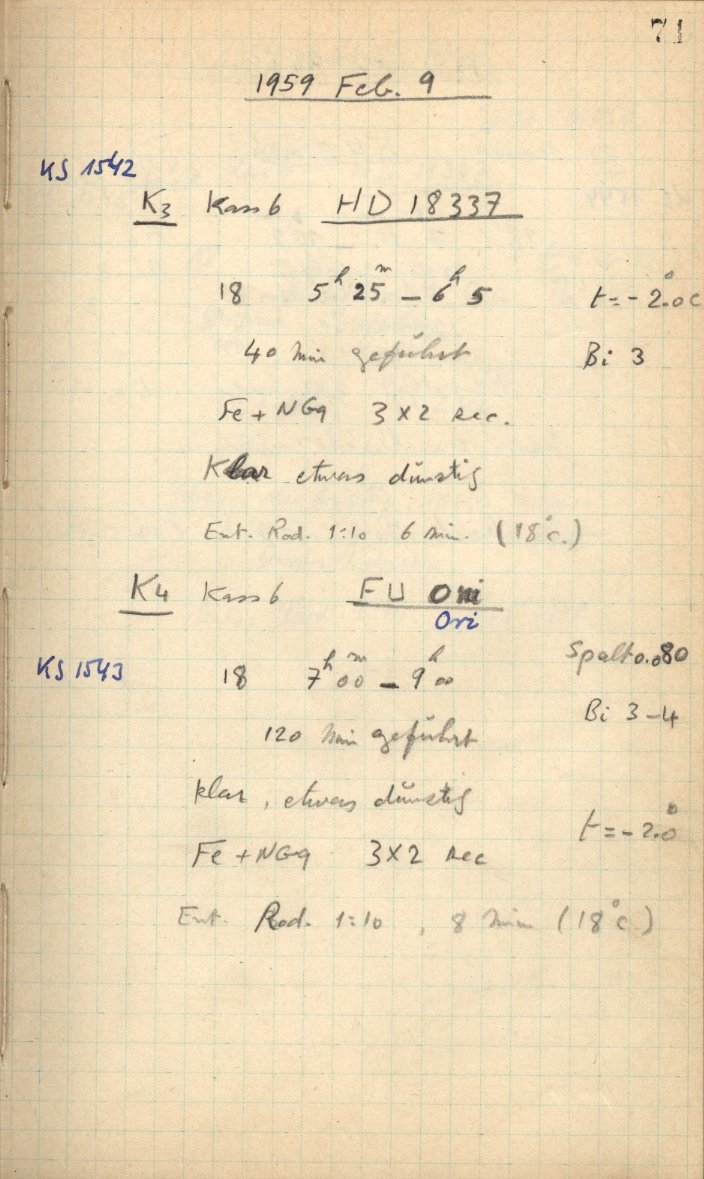 71
1959 Feb. 9
KS 1542
K3 Kass b HD 18337
18 5h 25m – 6h 5 t = - 2.°0 C
40 Min geführt Bi 3
Fe + NG9 3 x 2 sec.
Klar etwas dunstig
Ent. Rod. 1:10 6 Min. (18°C.)
K4 Kass b FU Ori
Ori
Spalt 0.080
KS 1543 18 7h 00m – 9h 00
Bi 3–4
120 Min geführt
klar, etwas dunstig
t = - 2.°0
Fe + NG9 3 x 2 sec
Ent. Rod. 1:10, 8 Min (18°C)